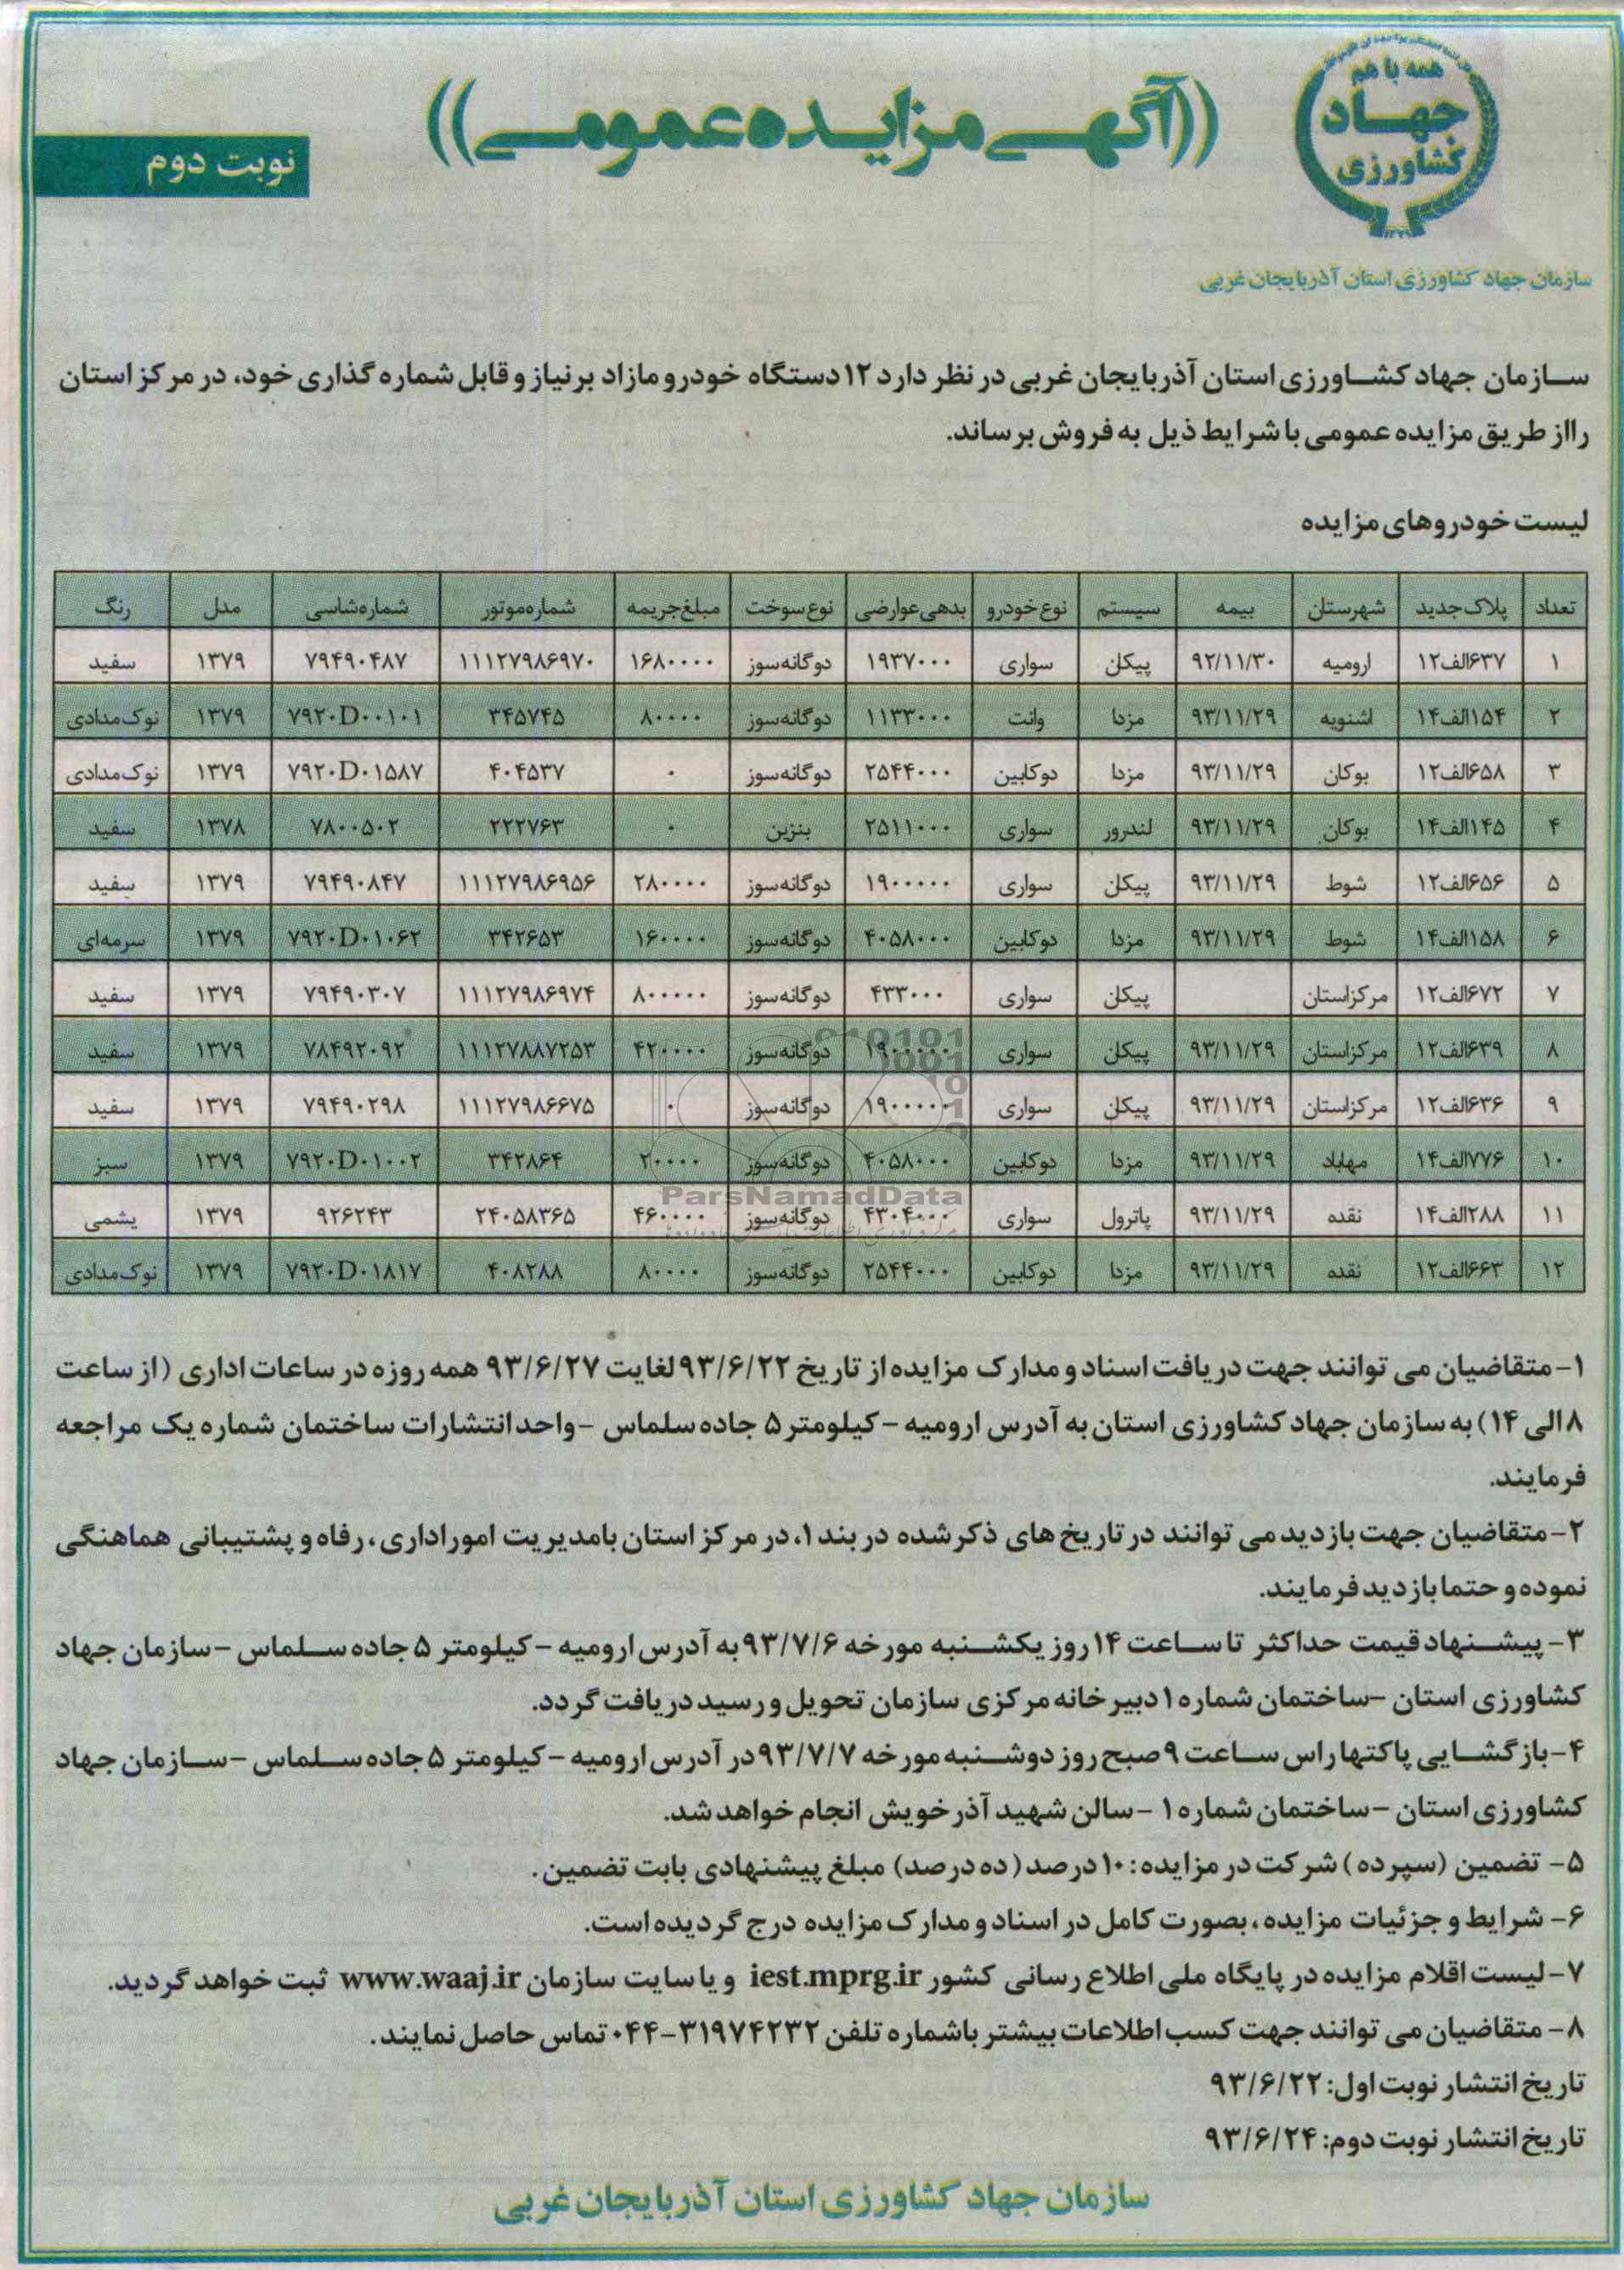 همه با هم
جهاد
کشاورزی
((آگهی مزایده عمومی))
نوبت دوم
سازمان جهاد کشاورزی استان آذربایجان غربی
سازمان جهاد کشاورزی استان آذربایجان غربی در نظر دارد ۱۲ دستگاه خودرو مازاد بر نیاز و قابل شماره گذاری خود، در مرکز استان
را از طریق مزایده عمومی با شرایط ذیل به فروش برساند.
لیست خودروهای مزایده
تعداد پلاک جدید شهرستان بیمه سیستم نوع خودرو بدهی عوارضی نوع سوخت مبلغ جریمه شماره موتور شماره شاسی مدل رنگ
۱ ۶۳۷الف۱۲ ارومیه ۹۲/۱۱/۳۰ پیکان سواری ۱۹۳۷۰۰۰ دوگانه سوز ۱۶۸۰۰۰۰ ۱۱۱۲۷۹۸۶۹۷۰ ۷۹۴۹۰۴۸۷ ۱۳۷۹ سفید
۲ ۱۵۴الف۱۴ اشنویه ۹۳/۱۱/۲۹ مزدا وانت ۱۱۳۳۰۰۰ دوگانه سوز ۸۰۰۰۰ ۳۴۵۷۴۵ ۷۹۲۰D۰۰۱۰۱ ۱۳۷۹ نوک مدادی
۳ ۶۵۸الف۱۲ بوکان ۹۳/۱۱/۲۹ مزدا دوکابین ۲۵۴۴۰۰۰ دوگانه سوز ۰ ۴۰۴۵۳۷ ۷۹۲۰D۰۱۵۸۷ ۱۳۷۹ نوک مدادی
۴ ۱۴۵الف۱۴ بوکان ۹۳/۱۱/۲۹ لندرور سواری ۲۵۱۱۰۰۰ بنزین ۰ ۲۲۲۷۶۳ ۷۸۰۰۵۰۲ ۱۳۷۸ سفید
۵ ۶۵۶الف۱۲ شوط ۹۳/۱۱/۲۹ پیکان سواری ۱۹۰۰۰۰۰ دوگانه سوز ۲۸۰۰۰۰ ۱۱۱۲۷۹۸۶۹۵۶ ۷۹۴۹۰۸۴۷ ۱۳۷۹ سفید
۶ ۱۵۸الف۱۴ شوط ۹۳/۱۱/۲۹ مزدا دوکابین ۴۰۵۸۰۰۰ دوگانه سوز ۱۶۰۰۰۰ ۳۴۲۶۵۳ ۷۹۲۰D۰۱۰۶۲ ۱۳۷۹ سرمه‌ای
۷ ۶۷۲الف۱۲ مرکزاستان پیکان سواری ۴۳۳۰۰۰ دوگانه سوز ۸۰۰۰۰۰ ۱۱۱۲۷۹۸۶۹۷۴ ۷۹۴۹۰۳۰۷ ۱۳۷۹ سفید
۸ ۶۳۹الف۱۲ مرکزاستان ۹۳/۱۱/۲۹ پیکان سواری ۱۹۰۰۰۰۰ دوگانه سوز ۴۲۰۰۰۰ ۱۱۱۲۷۸۸۷۲۵۳ ۷۸۴۹۲۰۹۲ ۱۳۷۹ سفید
۹ ۶۳۶الف۱۲ مرکزاستان ۹۳/۱۱/۲۹ پیکان سواری ۱۹۰۰۰۰۰ دوگانه سوز ۰ ۱۱۱۲۷۹۸۶۶۷۵ ۷۹۴۹۰۲۹۸ ۱۳۷۹ سفید
۱۰ ۷۷۶الف۱۴ مهاباد ۹۳/۱۱/۲۹ مزدا دوکابین ۴۰۵۸۰۰۰ دوگانه سوز ۲۰۰۰۰ ۳۴۲۸۶۴ ۷۹۲۰D۰۱۰۰۲ ۱۳۷۹ سبز
۱۱ ۲۸۸الف۱۴ نقده ۹۳/۱۱/۲۹ پاترول سواری ۴۳۰۴۰۰۰ دوگانه سوز ۴۶۰۰۰۰ ۲۴۰۵۸۳۶۵ ۹۲۶۲۴۳ ۱۳۷۹ یشمی
۱۲ ۶۶۳الف۱۲ نقده ۹۳/۱۱/۲۹ مزدا دوکابین ۲۵۴۴۰۰۰ دوگانه سوز ۸۰۰۰۰ ۴۰۸۲۸۸ ۷۹۲۰D۰۱۸۱۷ ۱۳۷۹ نوک مدادی
ParsNamadData
۱- متقاضیان می توانند جهت دریافت اسناد و مدارک مزایده از تاریخ ۹۳/۶/۲۲ لغایت ۹۳/۶/۲۷ همه روزه در ساعات اداری (از ساعت
۸ الی ۱۴) به سازمان جهاد کشاورزی استان به آدرس ارومیه - کیلومتر ۵ جاده سلماس - واحد انتشارات ساختمان شماره یک مراجعه
فرمایند.
۲- متقاضیان جهت بازدید می توانند در تاریخ های ذکر شده در بند ۱، در مرکز استان با مدیریت امور اداری، رفاه و پشتیبانی هماهنگی
نموده و حتما بازدید فرمایند.
۳- پیشنهاد قیمت حداکثر تا ساعت ۱۴ روز یکشنبه مورخه ۹۳/۷/۶ به آدرس ارومیه - کیلومتر ۵ جاده سلماس - سازمان جهاد
کشاورزی استان - ساختمان شماره ۱ دبیرخانه مرکزی سازمان تحویل و رسید دریافت گردد.
۴- بازگشایی پاکتها راس ساعت ۹ صبح روز دوشنبه مورخه ۹۳/۷/۷ در آدرس ارومیه - کیلومتر ۵ جاده سلماس - سازمان جهاد
کشاورزی استان - ساختمان شماره ۱ - سالن شهید آذرخویش انجام خواهد شد.
۵- تضمین (سپرده) شرکت در مزایده: ۱۰ درصد (ده درصد) مبلغ پیشنهادی بابت تضمین.
۶- شرایط و جزئیات مزایده، بصورت کامل در اسناد و مدارک مزایده درج گردیده است.
۷- لیست اقلام مزایده در پایگاه ملی اطلاع رسانی کشور iest.mprg.ir و یا سایت سازمان www.waaj.ir ثبت خواهد گردید.
۸- متقاضیان می توانند جهت کسب اطلاعات بیشتر با شماره تلفن ۳۱۹۷۴۲۳۲-۰۴۴ تماس حاصل نمایند.
تاریخ انتشار نوبت اول: ۹۳/۶/۲۲
تاریخ انتشار نوبت دوم: ۹۳/۶/۲۴
سازمان جهاد کشاورزی استان آذربایجان غربی